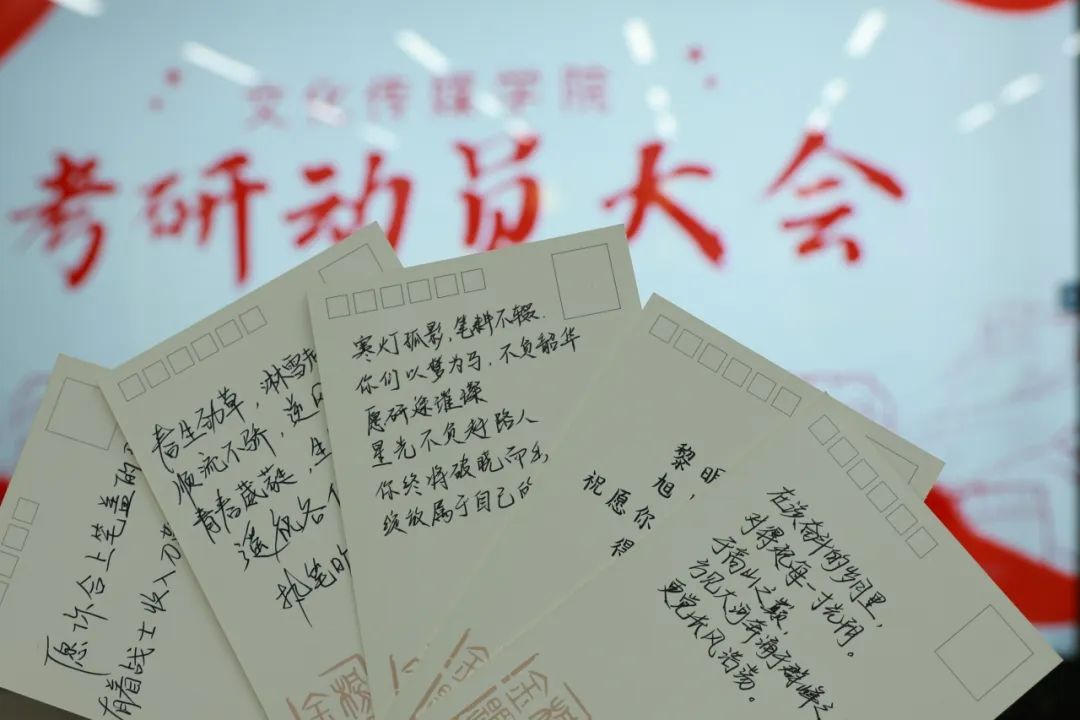 文化传媒学院
考研动员大会
愿你合上笔盖的
有着战士收入刀
春生劲草，淋雪
顺流不骄，逆风
青春葳蕤，生
遥祝各
执笔
寒灯孤影，笔耕不辍.
你们以梦为马，不负韶华
愿研途璀璨
星光不负赶路人
你终将破晓而出
绽放属于自己的
黎昕
旭，
祝愿你
得
在该奋斗的岁月里，
对得起每一寸光阴。
于高山之巅，
方见大河奔涌于群峰之
更觉长风浩荡。